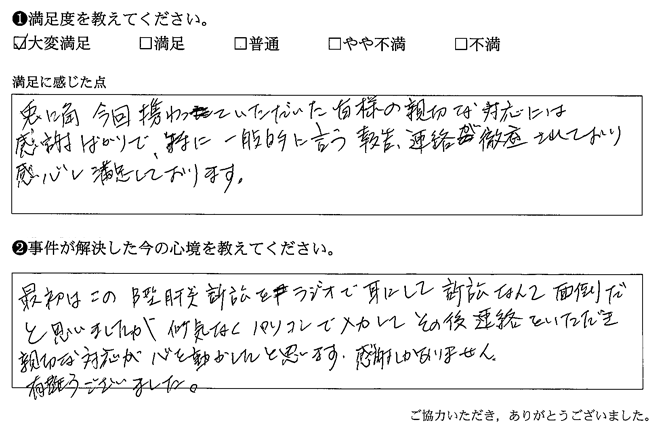 ❶満足度を教えてください。
☑大変満足 □満足 □普通 □やや不満 □不満
満足に感じた点
兎に角 今回携わっていただいた皆様の親切な対応には
感謝ばかりで、特に一般的に言う報告、連絡が徹底されており
感心し満足しております。
❷事件が解決した今の心境を教えてください。
最初はこのB型肝炎訴訟をラジオで耳にして訴訟なんて面倒だ
と思いましたが何気なくパソコンで入力してその後連絡をいただき
親切な対応が心を動かしたと思います。感謝しかありません。
有難うございました。
ご協力いただき，ありがとうございました。